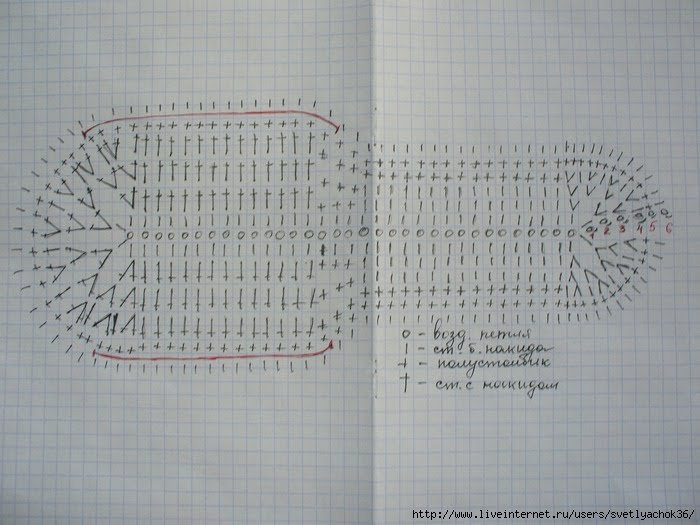 1 2 3 4 5 6
o - возд. петля
| - ст. б. накида
+ - полустолбик
† - ст. с накидом
http://www.liveinternet.ru/users/svetlyachok36/